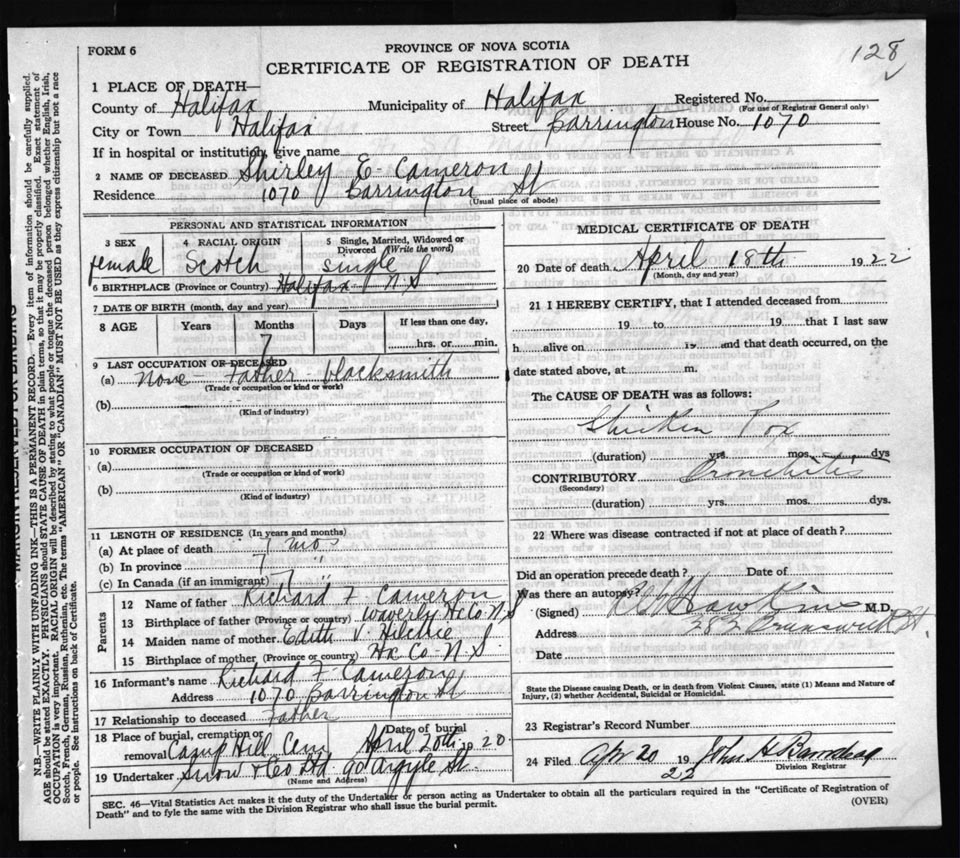 128
FORM 6
PROVINCE OF NOVA SCOTIA
CERTIFICATE OF REGISTRATION OF DEATH
1 PLACE OF DEATH—
County of Halifax Municipality of Halifax Registered No.
(For use of Registrar General only)
City or Town Halifax Street Barrington House No. 1070
If in hospital or institution, give name
2 NAME OF DECEASED Shirley E- Cameron
Residence 1070 Barrington St
(Usual place of abode)
PERSONAL AND STATISTICAL INFORMATION
3 SEX 4 RACIAL ORIGIN 5 Single, Married, Widowed or Divorced (Write the word)
female Scotch single
6 BIRTHPLACE (Province or Country) Halifax N.S
7 DATE OF BIRTH (month, day and year)
8 AGE Years Months Days If less than one day,
7 hrs. or min.
9 LAST OCCUPATION OF DECEASED
(a) None - Father blacksmith
(Trade or occupation or kind or work)
(b)
(Kind of industry)
10 FORMER OCCUPATION OF DECEASED
(a)
(Trade or occupation or kind of work)
(b)
(Kind of industry)
11 LENGTH OF RESIDENCE (In years and months)
(a) At place of death 7 mos
(b) In province 7 "
(c) In Canada (if an immigrant) 7 "
Parents
12 Name of father Richard F. Cameron
13 Birthplace of father (Province or country) Waverly Hx Co N.S
14 Maiden name of mother Edith V. Hilchie
15 Birthplace of mother (Province or country) Hx Co- N.S.
16 Informant's name Richard F- Cameron
Address 1070 Barrington St
17 Relationship to deceased Father
18 Place of burial, cremation or removal Camp Hill Cem Date of burial April 20th 1920
19 Undertaker Snow & Co Ltd 90 Argyle St.
(Name and Address)
MEDICAL CERTIFICATE OF DEATH
20 Date of death April 18th 1922
(Month, day and year)
21 I HEREBY CERTIFY, that I attended deceased from
19 to 19 that I last saw
alive on 19 and that death occurred, on the
date stated above, at m.
The CAUSE OF DEATH was as follows:
Chicken Pox
(duration) yrs. mos. dys
CONTRIBUTORY Bronchitis
(Secondary)
(duration) yrs. mos. dys.
22 Where was disease contracted if not at place of death?
Did an operation precede death? Date of
Was there an autopsy?
(Signed) Hawkins M.D.
Address 282 Brunswick St.
Date
State the Disease causing Death, or in death from Violent Causes, state (1) Means and Nature of Injury, (2) whether Accidental, Suicidal or Homicidal.
23 Registrar's Record Number
24 Filed Apr 20 1922 John A
Division Registrar
SEC. 46—Vital Statistics Act makes it the duty of the Undertaker or person acting as Undertaker to obtain all the particulars required in the "Certificate of Registration of
Death" and to fyle the same with the Division Registrar who shall issue the burial permit. (OVER)
MARGIN RESERVED FOR BINDING
N.B.—WRITE PLAINLY WITH UNFADING INK—THIS IS A PERMANENT RECORD.—Every item of information should be carefully supplied.
AGE should be stated EXACTLY. PHYSICIANS should STATE CAUSE OF DEATH in plain terms, so that it may be properly classified. Exact statement of
OCCUPATION is very important. RACIAL ORIGIN will be described by stating to what people or tongue the deceased person belonged whether English, Irish,
Scotch, French, German, Russian, Ruthenian, etc. The terms "AMERICAN" OR "CANADIAN" MUST NOT BE USED as they express citizenship but not a race
or people. See instructions on back of Certificate.